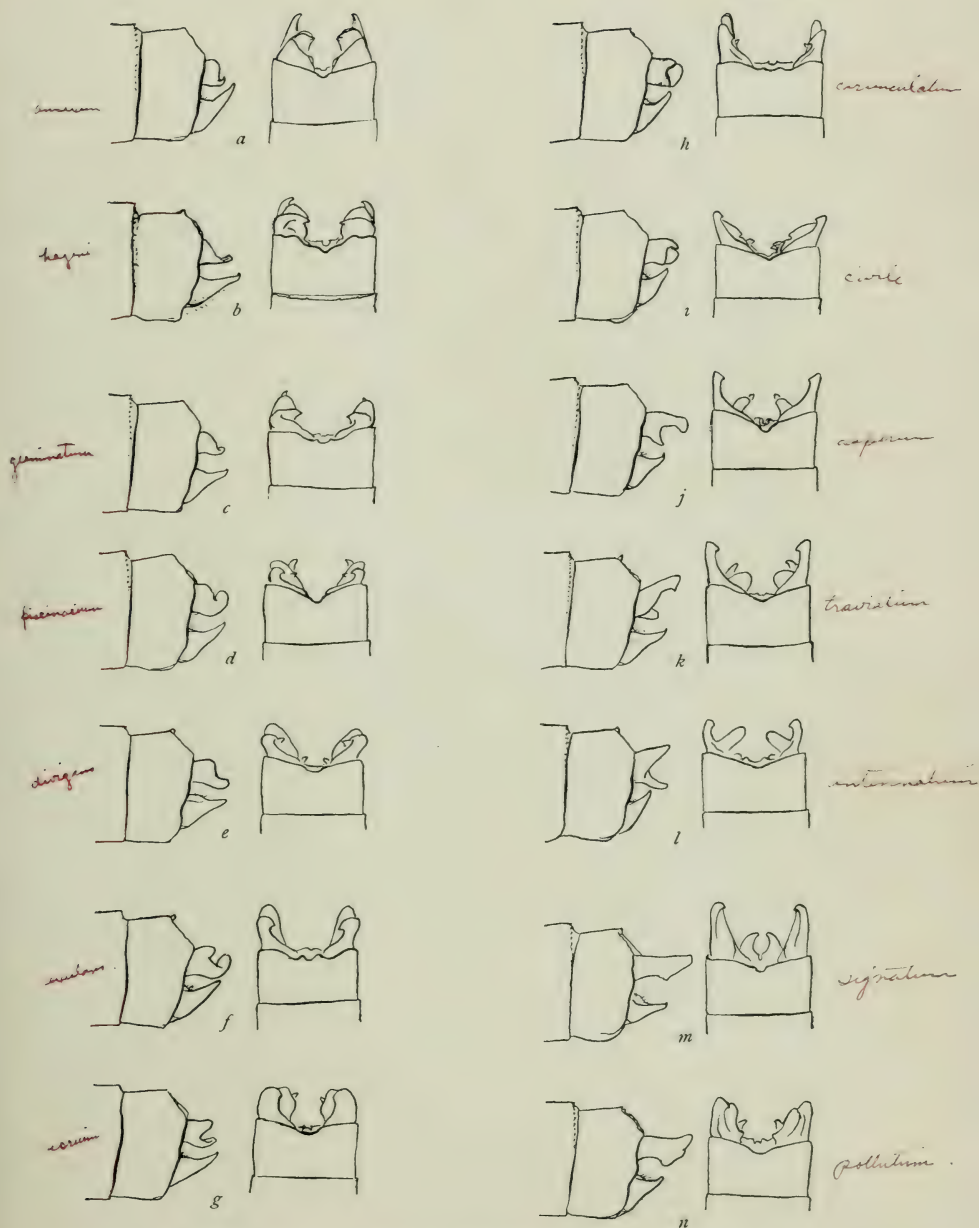 a
hageni
b
geminatum
c
piscinarium
d
divagans
e
exsulans
f
g
carunculatum
h
civile
i
aspersum
j
traviatum
k
antennatum
l
signatum
m
pollutum.
n